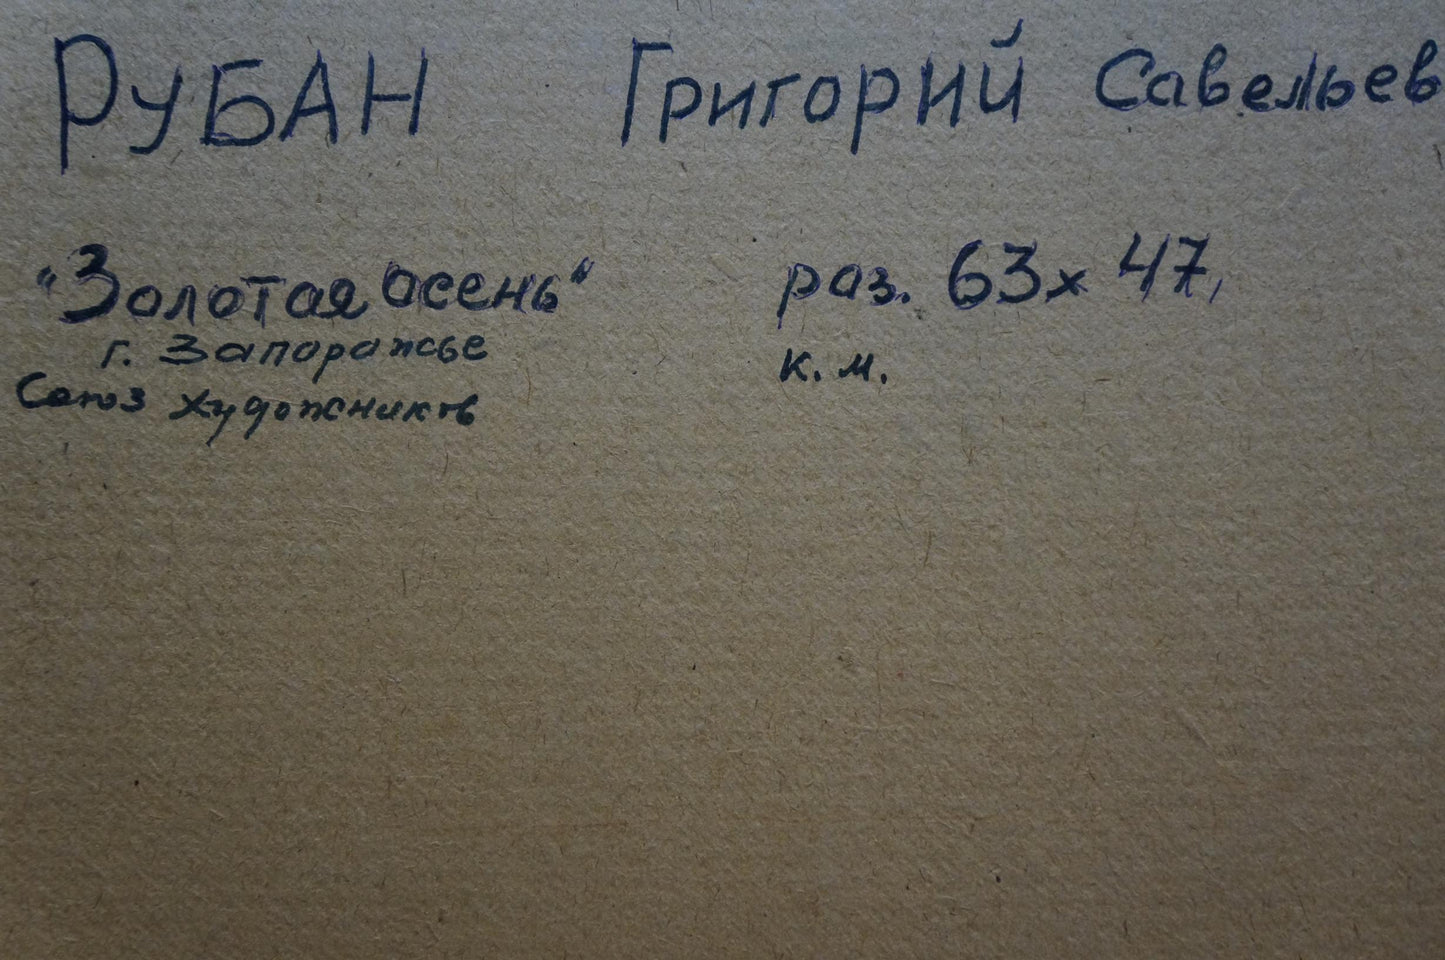 РУБАН Григорий Савельев
"Золотая осень" раз. 63х47,
г. Запоражье к.м.
Союз художников